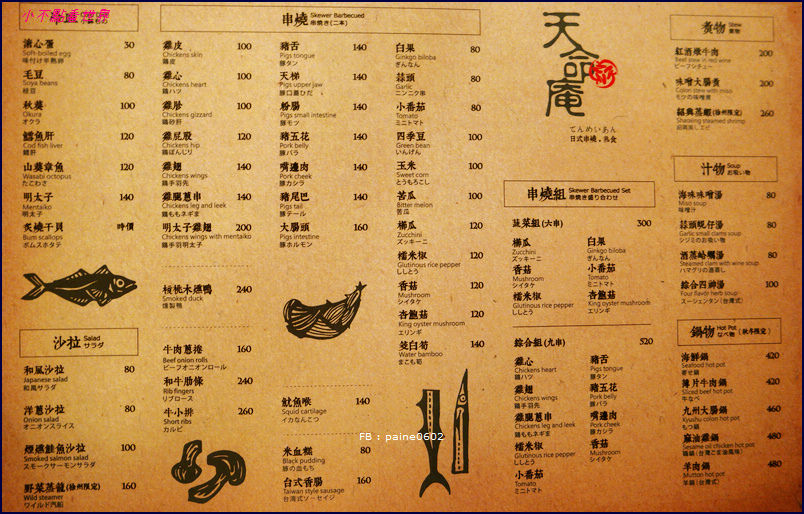 小不點看世界
溏心蛋 30
Soft-boiled egg
味付け半熟卵
毛豆 80
Soya beans
枝豆
秋葵 100
Okura
オクラ
鱈魚肝 120
Cod fish liver
鱈肝
山葵章魚 120
Wasabi octopus
たこわさ
明太子 140
Mentaiko
明太子
炙燒干貝 時價
Burn scallops
ボムスホタテ
沙拉 Salad
サラダ
和風沙拉 80
Japanese salad
和風サラダ
洋蔥沙拉 80
Onion salad
オニオンスライス
煙燻鮭魚沙拉 100
Smoked salmon salad
スモークサーモンサラダ
野菜蒸籠(徐州限定) 160
Wild steamer
ワイルド汽船
串燒 Skewer Barbecued
串焼き(二本)
雞皮 100
Chickens skin
雞心 100
Chickens heart
鶏ハツ
雞胗 100
Chickens gizzard
鶏砂肝
雞屁股 120
Chickens hip
鶏ぼんじり
雞翅 140
Chickens wings
鶏手羽先
雞腿蔥串 140
Chickens leg and leek
鶏ももネギま
明太子雞翅 200
Chickens wings with mentaiko
鶏手羽明太子
核桃木燻鴨 240
Smoked duck
燻製鴨
牛肉蔥捲 160
Beef onion rolls
ビーフオニオンロール
和牛肋條 240
Rib fingers
リブロース
牛小排 260
Short ribs
カルビ
豬舌 140
Pigs tongue
豚タン
天梯 140
Pigs upper jaw
豚口蓋ひだ
粉腸 140
Pigs small intestine
豚モツ
豬五花 140
Pork belly
豚バラ
嘴邊肉 140
Pork cheek
豚カシラ
豬尾巴 140
Pigs tail
豚テール
大腸頭 160
Pigs intestine
豚ホルモン
魷魚喉 140
Squid cartilage
イカなんこつ
米血糕 80
Black pudding
豚の血もち
台式香腸 160
Taiwan style sausage
台湾式ソーセイジ
白果 80
Ginkgo biloba
ぎんなん
蒜頭 80
Garlic
ニンニク串
小番茄 80
Tomato
ミニトマト
四季豆 100
Green bean
いんげん
玉米 100
Sweet corn
とうもろこし
苦瓜 100
Bitter melon
苦瓜
櫛瓜 120
Zucchini
ズッキーニ
糯米椒 120
Glutinous rice pepper
ししとう
香菇 120
Mushroom
シイタケ
杏鮑菇 120
King oyster mushroom
エリンギ
茭白筍 140
Water bamboo
まこも筍
天命庵
てんめいあん
日式串燒.熟食
串燒組 Skewer Barbecued Set
串焼き盛り合わせ
蔬菜組(六串) 300
櫛瓜
Zucchini
ズッキーニ
香菇
Mushroom
シイタケ
糯米椒
Glutinous rice pepper
ししとう
白果
Ginkgo biloba
ぎんなん
小番茄
Tomato
ミニトマト
杏鮑菇
King oyster mushroom
エリンギ
綜合組(九串) 520
雞心
Chickens heart
鶏ハツ
雞翅
Chickens wings
鶏手羽先
雞腿蔥串
Chickens leg and leek
鶏ももネギま
糯米椒
Glutinous rice pepper
ししとう
小番茄
Tomato
ミニトマト
豬舌
Pigs tongue
豚タン
豬五花
Pork belly
豚バラ
嘴邊肉
Pork cheek
豚カシラ
香菇
Mushroom
シイタケ
煮物 Stew
煮物
紅酒燉牛肉 200
Beef stew in red wine
ビーフシチュー
味噌大腸煮 200
Colon stew with miso
モツの味噌煮
紹興蒸蝦(徐州限定) 260
Shaoxing steamed shrimp
紹興蒸しエビ
汁物 Soup
お吸い物
海味味噌湯 80
Miso soup
味噌汁
蒜頭蜆仔湯 80
Garlic small clams soup
シジミのお吸い物
酒蒸蛤蠣湯 80
Steamed clam with wine soup
ハマグリの酒蒸し
綜合四神湯 100
Four flavor herb soup
スーシェンタン(台湾式)
鍋物 Hot Pot
なべ物 (秋冬限定)
海鮮鍋 420
Seafood hot pot
寄せ鍋
薄片牛肉鍋 420
Sliced beef hot pot
牛なべ
九州大腸鍋 460
Kyushu colon hot pot
もつ鍋
麻油雞鍋 480
Sesame oil chicken hot pot
鶏鍋(台湾ごま油風味)
羊肉鍋 480
Mutton hot pot
羊鍋(台湾式)
FB : paine0602